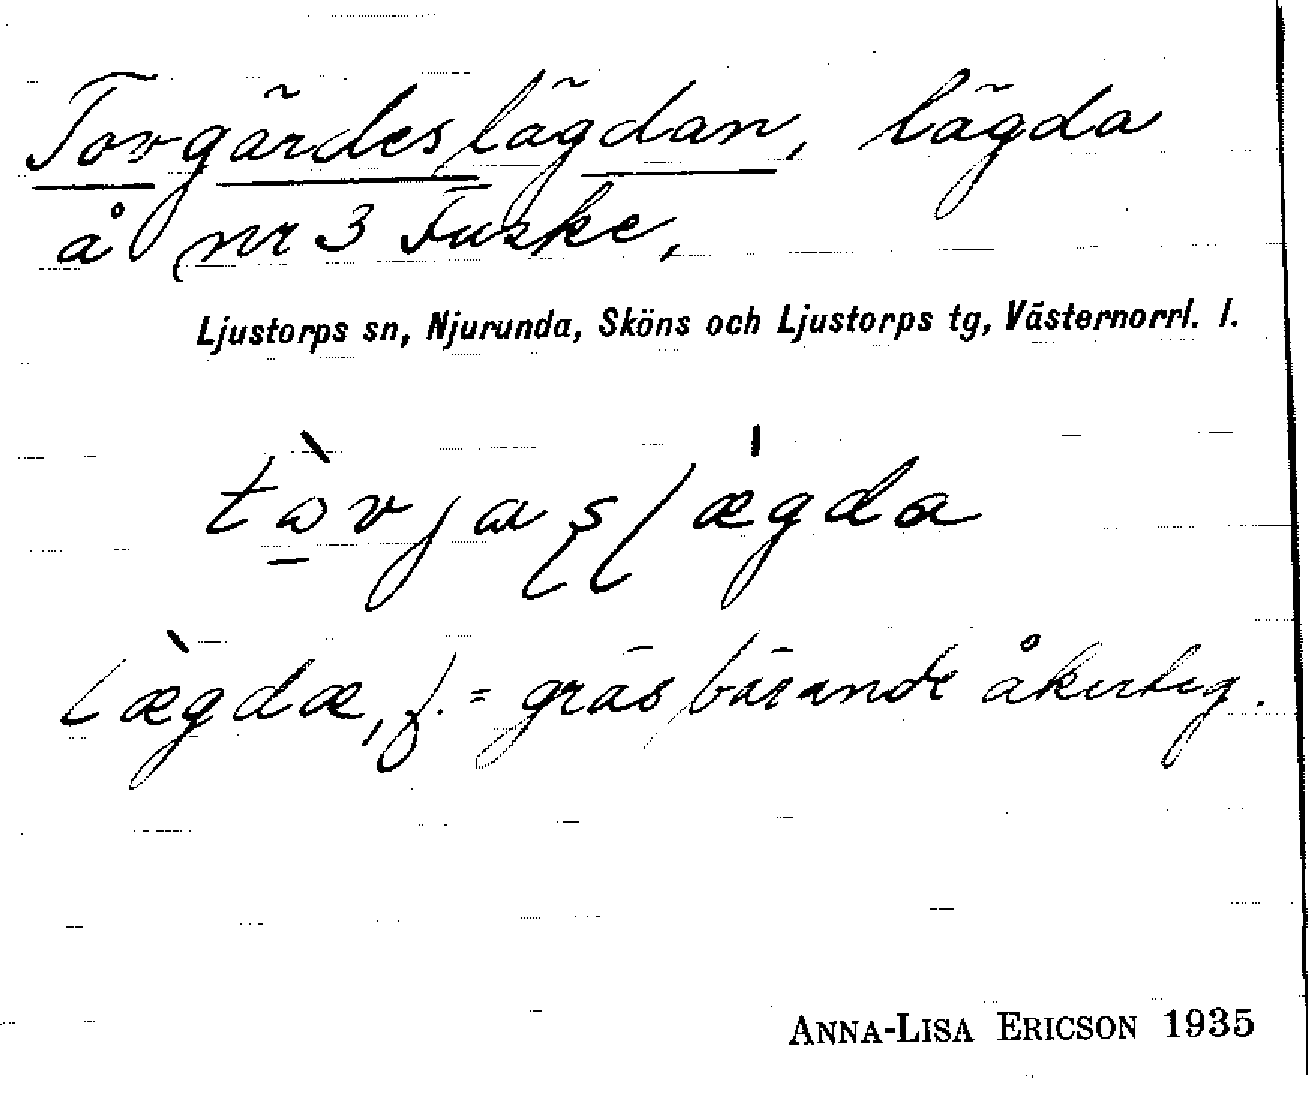 Tovgärdeslägdan, lägda
å nr 3 Fuske,
Ljustorps sn, Njurunda, Sköns och Ljustorps tg, Västernorrl. l.
tòvjaslægda
lægdæ, f. = gräsbärande åkerteg.
ANNA-LISA ERICSON 1935